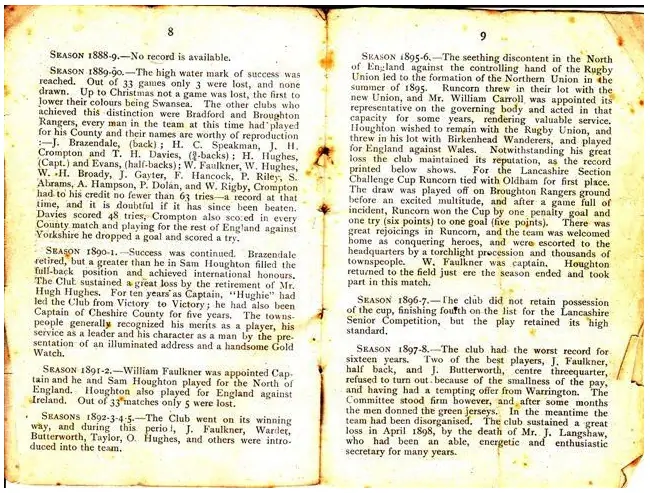 8
SEASON 1888-9.—No record is available.
SEASON 1889-90.—The high water mark of success was
reached. Out of 33 games only 3 were lost, and none
drawn. Up to Christmas not a game was lost, the first to
lower their colours being Swansea. The other clubs who
achieved this distinction were Bradford and Broughton
Rangers, every man in the team at this time had played
for his County and their names are worthy of reproduction
:—J. Brazendale, (back); H. C. Speakman, J. H.
Crompton and T. H. Davies, (¾-backs); H. Hughes,
(Capt.) and Evans, (half-backs); W. Faulkner, W. Hughes,
W. H. Broady, J. Gayter, F. Hancock, P. Riley, S.
Abrams, A. Hampson, P. Dolan, and W. Rigby, Crompton
had to his credit no fewer than 63 tries—a record at that
time, and it is doubtful if it has since been beaten.
Davies scored 48 tries, Crompton also scored in every
County match and playing for the rest of England against
Yorkshire he dropped a goal and scored a try.
SEASON 1890-1.—Success was continued. Brazendale
retired, but a greater than he in Sam Houghton filled the
full-back position and achieved international honours.
The Club sustained a great loss by the retirement of Mr.
Hugh Hughes. For ten years as Captain, "Hughie" had
led the Club from Victory to Victory; he had also been
Captain of Cheshire County for five years. The towns-
people generally recognized his merits as a player, his
service as a leader and his character as a man by the pre-
sentation of an illuminated address and a handsome Gold
Watch.
SEASON 1891-2.—William Faulkner was appointed Cap-
tain and he and Sam Houghton played for the North of
England. Houghton also played for England against
Ireland. Out of 33 matches only 5 were lost.
SEASONS 1892-3-4-5.—The Club went on its winning
way, and during this period, J. Faulkner, Warder,
Butterworth, Taylor, O. Hughes, and others were intro-
duced into the team.
9
SEASON 1895-6.—The seething discontent in the North
of England against the controlling hand of the Rugby
Union led to the formation of the Northern Union in the
summer of 1895. Runcorn threw in their lot with the
new Union, and Mr. William Carroll was appointed its
representative on the governing body and acted in that
capacity for some years, rendering valuable service.
Houghton wished to remain with the Rugby Union, and
threw in his lot with Birkenhead Wanderers, and played
for England against Wales. Notwithstanding his great
loss the club maintained its reputation, as the record
printed below shows. For the Lancashire Section
Challenge Cup Runcorn tied with Oldham for first place.
The draw was played off on Broughton Rangers ground
before an excited multitude, and after a game full of
incident, Runcorn won the Cup by one penalty goal and
one try (six points) to one goal (five points). There was
great rejoicings in Runcorn, and the team was welcomed
home as conquering heroes, and were escorted to the
headquarters by a torchlight procession and thousands of
townspeople. W. Faulkner was captain. Houghton
returned to the field just ere the season ended and took
part in this match.
SEASON 1896-7.—The club did not retain possession
of the cup, finishing fourth on the list for the Lancashire
Senior Competition, but the play retained its high
standard.
SEASON 1897-8.—The club had the worst record for
sixteen years. Two of the best players, J. Faulkner,
half back, and J. Butterworth, centre threequarter,
refused to turn out because of the smallness of the pay,
and having had a tempting offer from Warrington. The
Committee stood firm however, and after some months
the men donned the green jerseys. In the meantime the
team had been disorganised. The club sustained a great
loss in April 1898, by the death of Mr. J. Langshaw,
who had been an able, energetic and enthusiastic
secretary for many years.